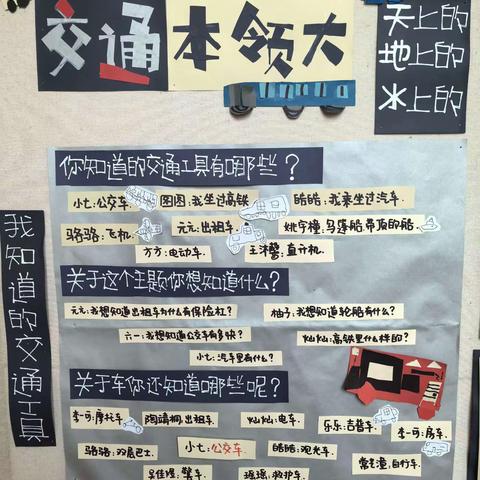 交通
本领大
天上的
地上的
水上的
我知道的交通工具
你知道的交通工具有哪些？
小七：公交车.
图图：我坐过高铁
皓皓：我乘坐过汽车.
骆骆：飞机.
元元：出租车.
姚宇橦：乌篷船.带顶的船.
方方：电动车.
王沐馨：直升机.
关于这个主题你想知道什么？
元元：我想知道出租车为什么有保险杠？
柚子：我想知道轮船有什么？
六一：我想知道公交车有多快？
灿灿：高铁里什么样的？
小七：汽车里有什么？
关于车你还知道哪些呢？
李一可：摩托车.
陶靖桐：出租车.
灿灿：电车.
乐乐：吉普车.
李一可：房车.
骆骆：双层巴士.
小七：公交车.
皓皓：观光车.
吴佳煜：警车.
瑶瑶：救护车.
自行车.